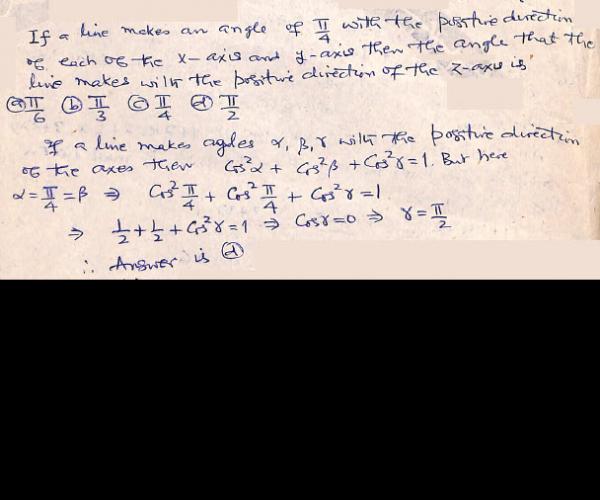 If a line makes an angle of π/4 with the positive direction
of each of the x-axis and y-axis then the angle that the
line makes with the positive direction of the z-axis is
(a) π/6 (b) π/3 (c) π/4 (d) π/2
If a line makes agles α, β, γ with the positive direction
of the axes then Cos²α + Cos²β + Cos²γ = 1. But here
α = π/4 = β ⇒ Cos² π/4 + Cos² π/4 + Cos² γ = 1
⇒ 1/2 + 1/2 + Cos²γ = 1 ⇒ Cosγ = 0 ⇒ γ = π/2
∴ Answer is (d)